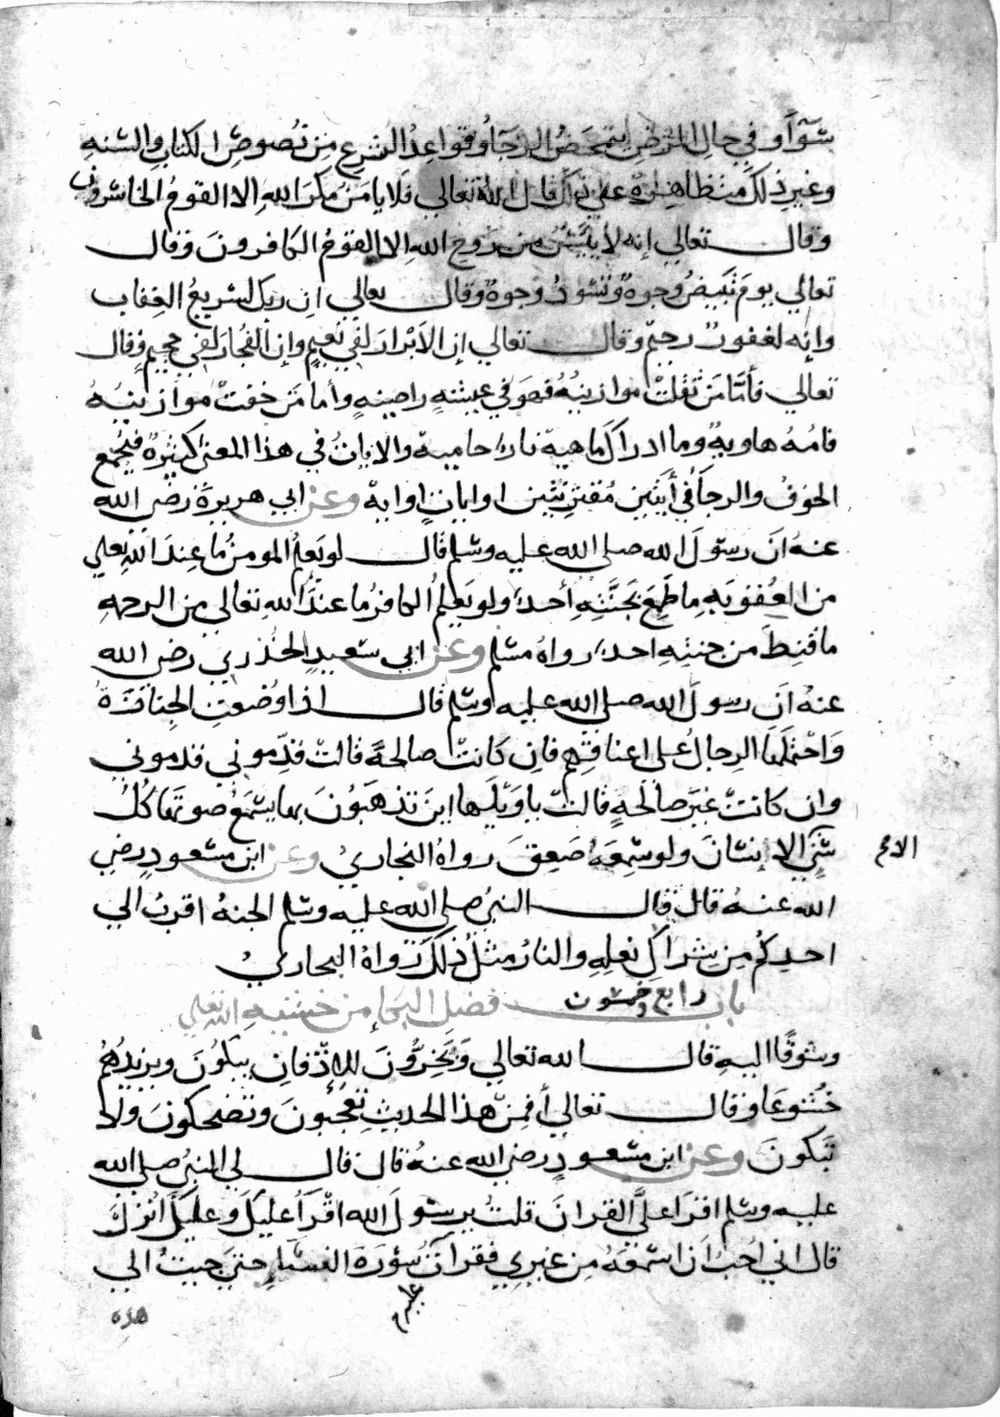 سوآ وفي حال المرض يتمحض الرجآ وقواعد الشرع من نصوص الكتاب والسنه
وغير ذلك متظاهرة علي ذلك قال الله تعالي فلا يامن مكر الله الا القوم الخاسرون
وقال تعالي إنه لا ييئس من روح الله الا القوم الكافرون وقال
تعالي يوم تبيض وجوه وتسود وجوه وقال تعالي ان ربك لسريع العقاب
وإنه لغفور رحيم وقال تعالي إن الابرار لفي نعيم وإن الفجار لفي جحيم وقال
تعالي فأما من ثقلت موازينه فهو في عيشه راضيه وأما من خفت موازينه
فامه هاويه وما ادراك ماهيه نار حاميه والايات في هذا المعنى كثيرة فيجمع
الخوف والرجا في أيتين مقترنتين او ايات او ايه وعن ابي هريرة رضي الله
عنه ان رسول الله صلى الله عليه وسلم قال لو يعلم المومن ما عند الله تعلي
من العقوبه ما طمع بجنته أحد ولو يعلم الكافر ما عند الله تعالي من الرحمه
ما قنط من جنته احد رواه مسلم وعن ابي سعيد الخذري رضي الله
عنه ان رسول الله صلى الله عليه وسلم قال اذا وضعت الجنازة
واحتملها الرجال على اعناقهم فان كانت صالحة قالت قدموني قدموني
وان كانت غير صالحه قالت ياويلها اين تذهبون بها يسمع صوتها كل
شي الا إنسان ولو سمعه صعق رواه البخاري وعن ابن مسعود رضي
الله عنه قال قال النبي صلى الله عليه وسلم الجنة اقرب الي
احدكم من شراك نعله والنار مثل ذلك رواه البخاري
باب رابع وخمسون فضل البكا من خشيه الله تعلي
وشوقا اليه قال الله تعالي ويخرون للاذقان يبكون ويزيدهم
خشوعا وقال تعالي أفمن هذا الحديث تعجبون وتضحكون ولا
تبكون وعن ابن مسعود رضي الله عنه قال قال لي النبي صلى الله
عليه وسلم اقرا علي القران قلت يرسول الله اقرأ عليك وعليك انزل
قال اني احب ان اسمعه من غيري فقرات سورة النساء حتي جيت الي
عليه
هذه